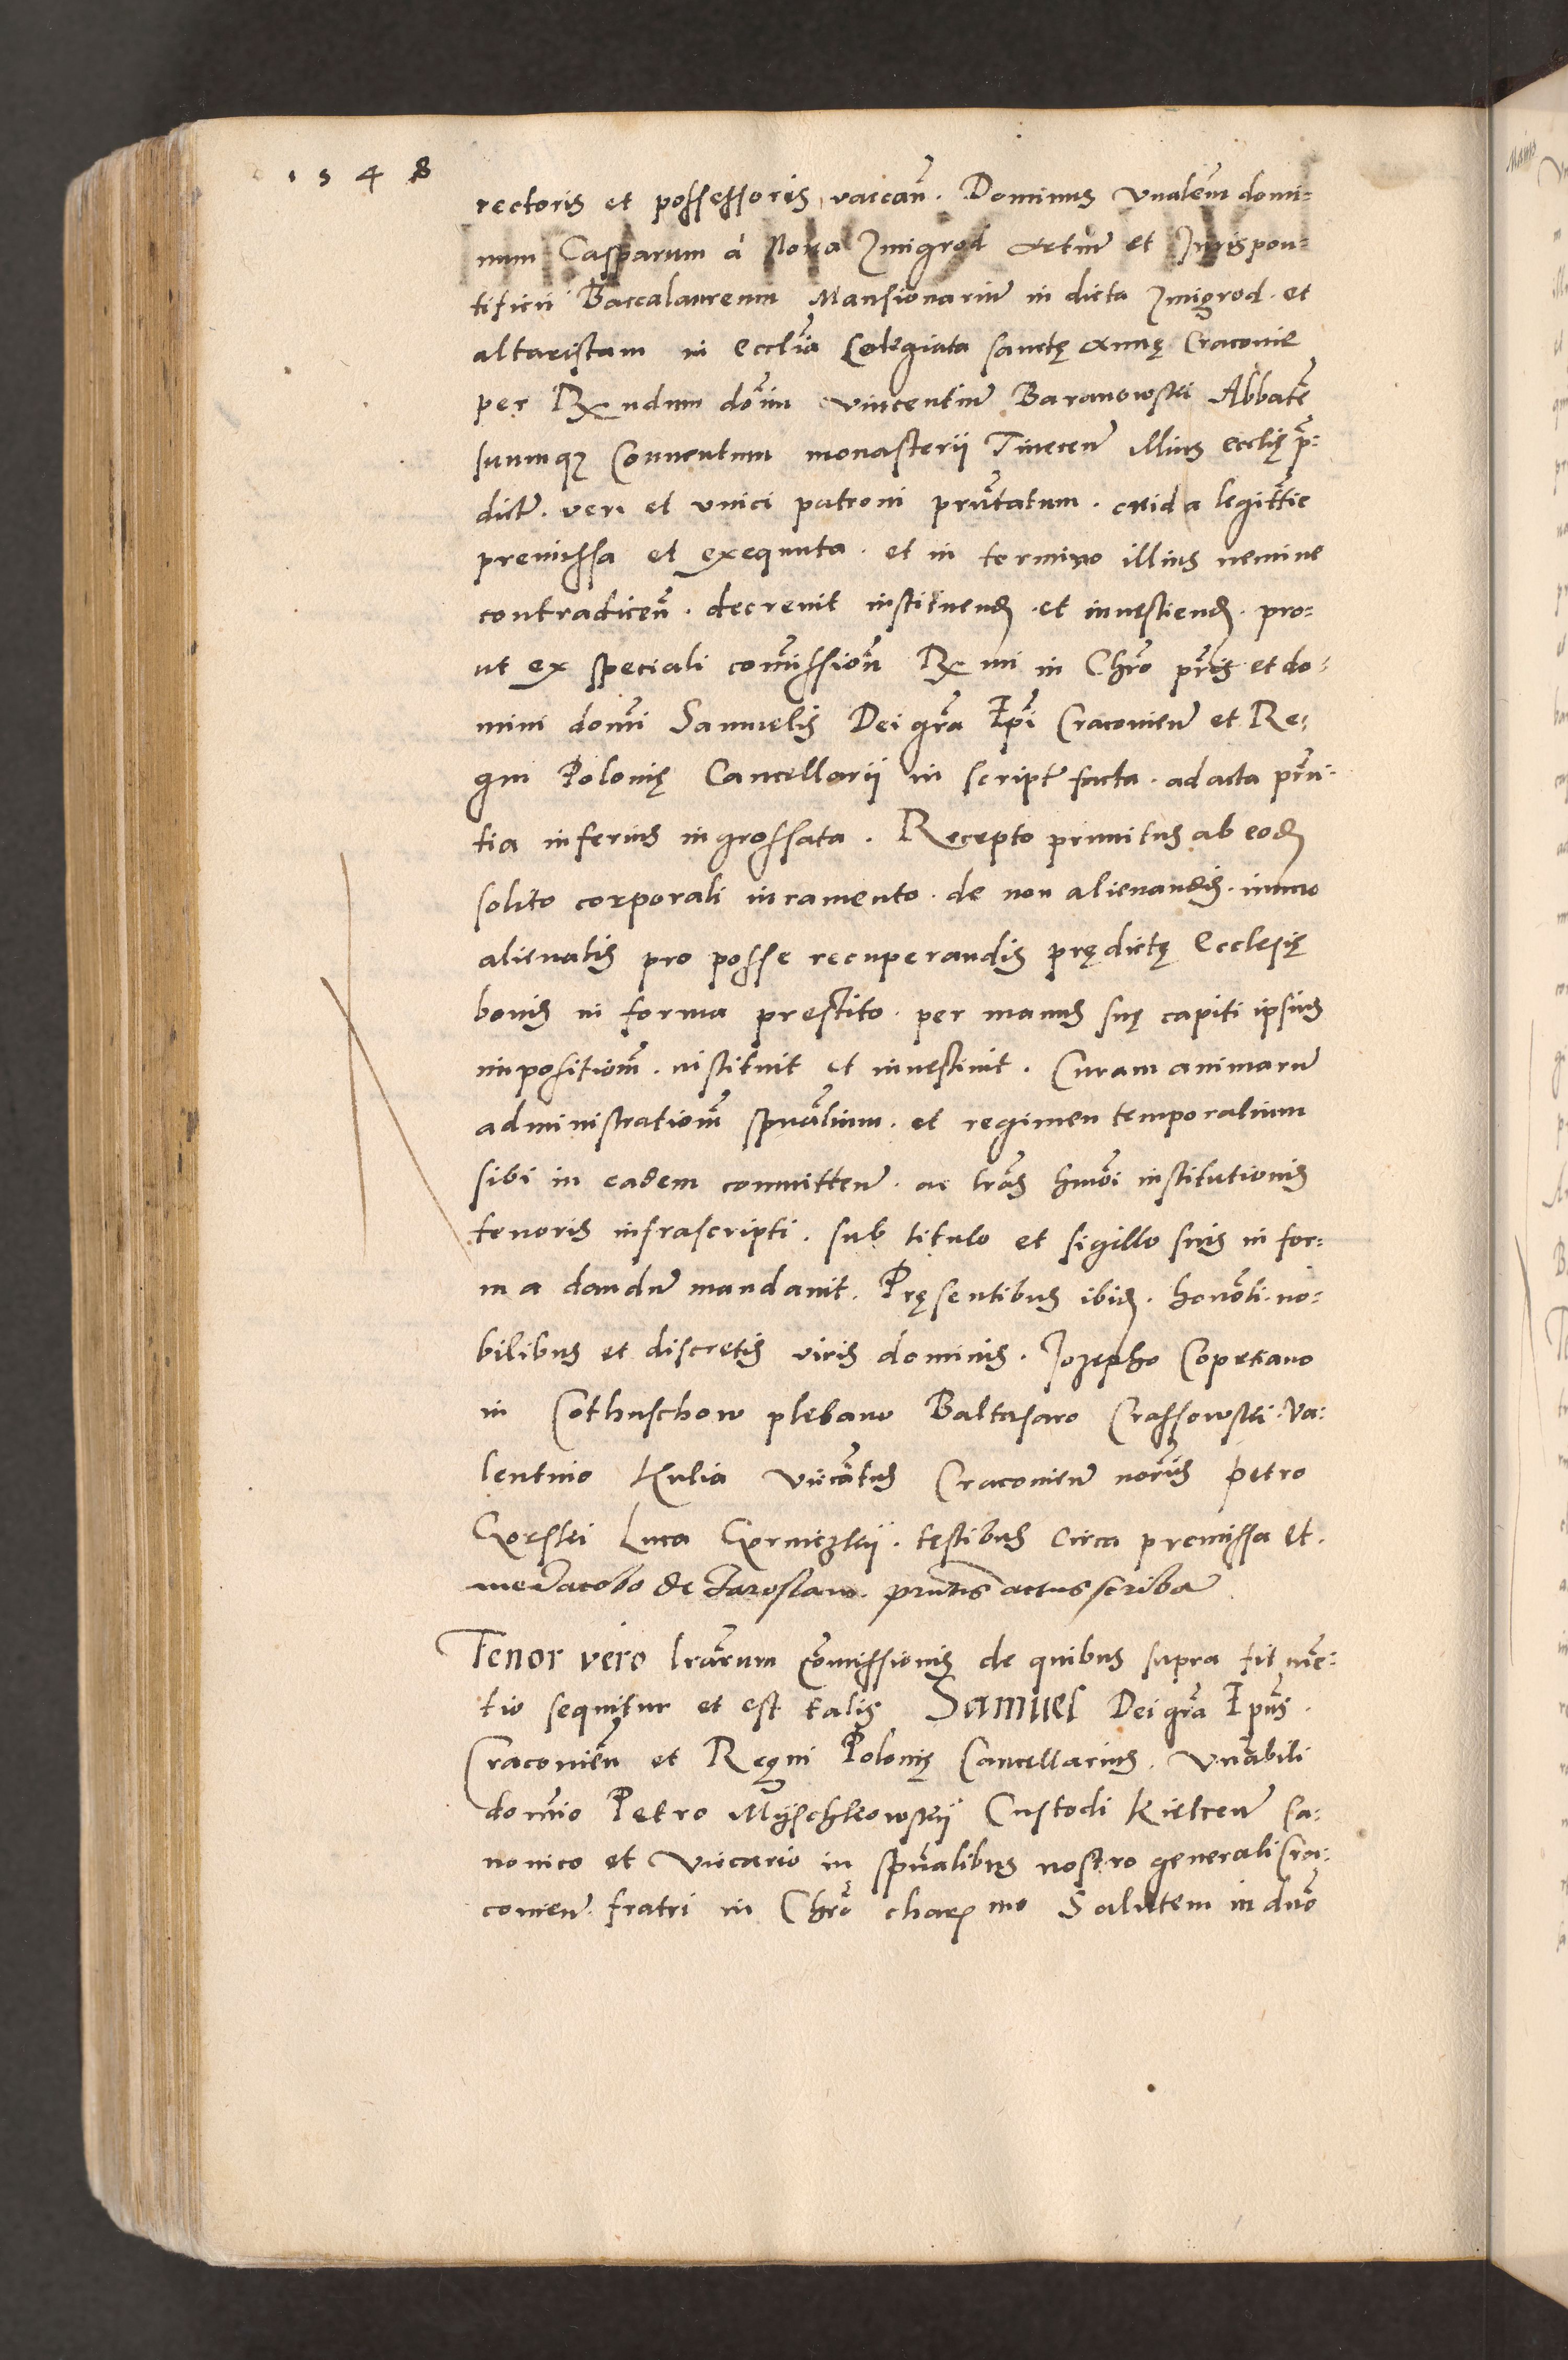 1548
rectoris et possessoris vaccan̄. Dominus Vnalem domi-
num Casparum a Nova Zmigrod Artiū et Juris pon-
tificii Baccalaureum Mansionariū in dicta Zmigrod. et
altaristam in ecclīa Collegiata sanctę Annę Cracovie
per Rx̄ndum dom̄ Vincentiū Baranowski Abbatē
suumqꝫ Conventum monasterii Tinecen̄ illius ecclię p̄-
dictę. veri et unici patroni pn̄tatum. crida legittīe
premissa et exequuta. et in termino illius nemine
contradicen̄. decrevit instituend̄. et investiend̄. pro-
ut ex speciali com̄ission̄ Rx̄mi in Chrō pr̄is et do-
mini domi Samuelis Dei grā Epī Cracovien̄ et Re-
gni Polonię Cancellarii in script̄ facta. ad acta pn̄-
tia inferius ingrossata. Recepto primitus ab eod̄
solito corporali iuramento. de non alienandis. immo
alienatis pro posse recuperandis prędictę Ecclesię
bonis in forma prestito. per manus suę capiti ipsius
impositiom̄. instituit et investivit. Curam animarū
administratiom̄ spūalium. et regimen temporalium
sibi in eadem committen̄. ac lrās hmōi institutionis
tenoris infrascripti. sub titulo et sigillo suis in for-
ma dandū mandavit. Pręsentibus ibid̄. honorabili. no-
bilibus et discretis viris dominis. Jozepho
in Cothuschow plebano Baltasaro Crassowski. Va-
lentino Kulia Cracovien̄ notariis Petro
Gorski Luca testibus circa premissa et.
me Jacobo de Jaroslaw. pn̄tis actus scriba
Tenor vero lrārum com̄issionis de quibus supra fit mē-
tio sequitur et est talis Samuel Dei grā Epūs.
Cracovien̄ et Regni Polonię Cancellarius. Vnābili
dom̄io Petro Mÿschkowskÿ Custodi Kielcen̄ Ca-
nonico et Vicario in spūalibus nostro generali Cra-
covien̄. fratri in Chrō char̄mo Salutem in dnō